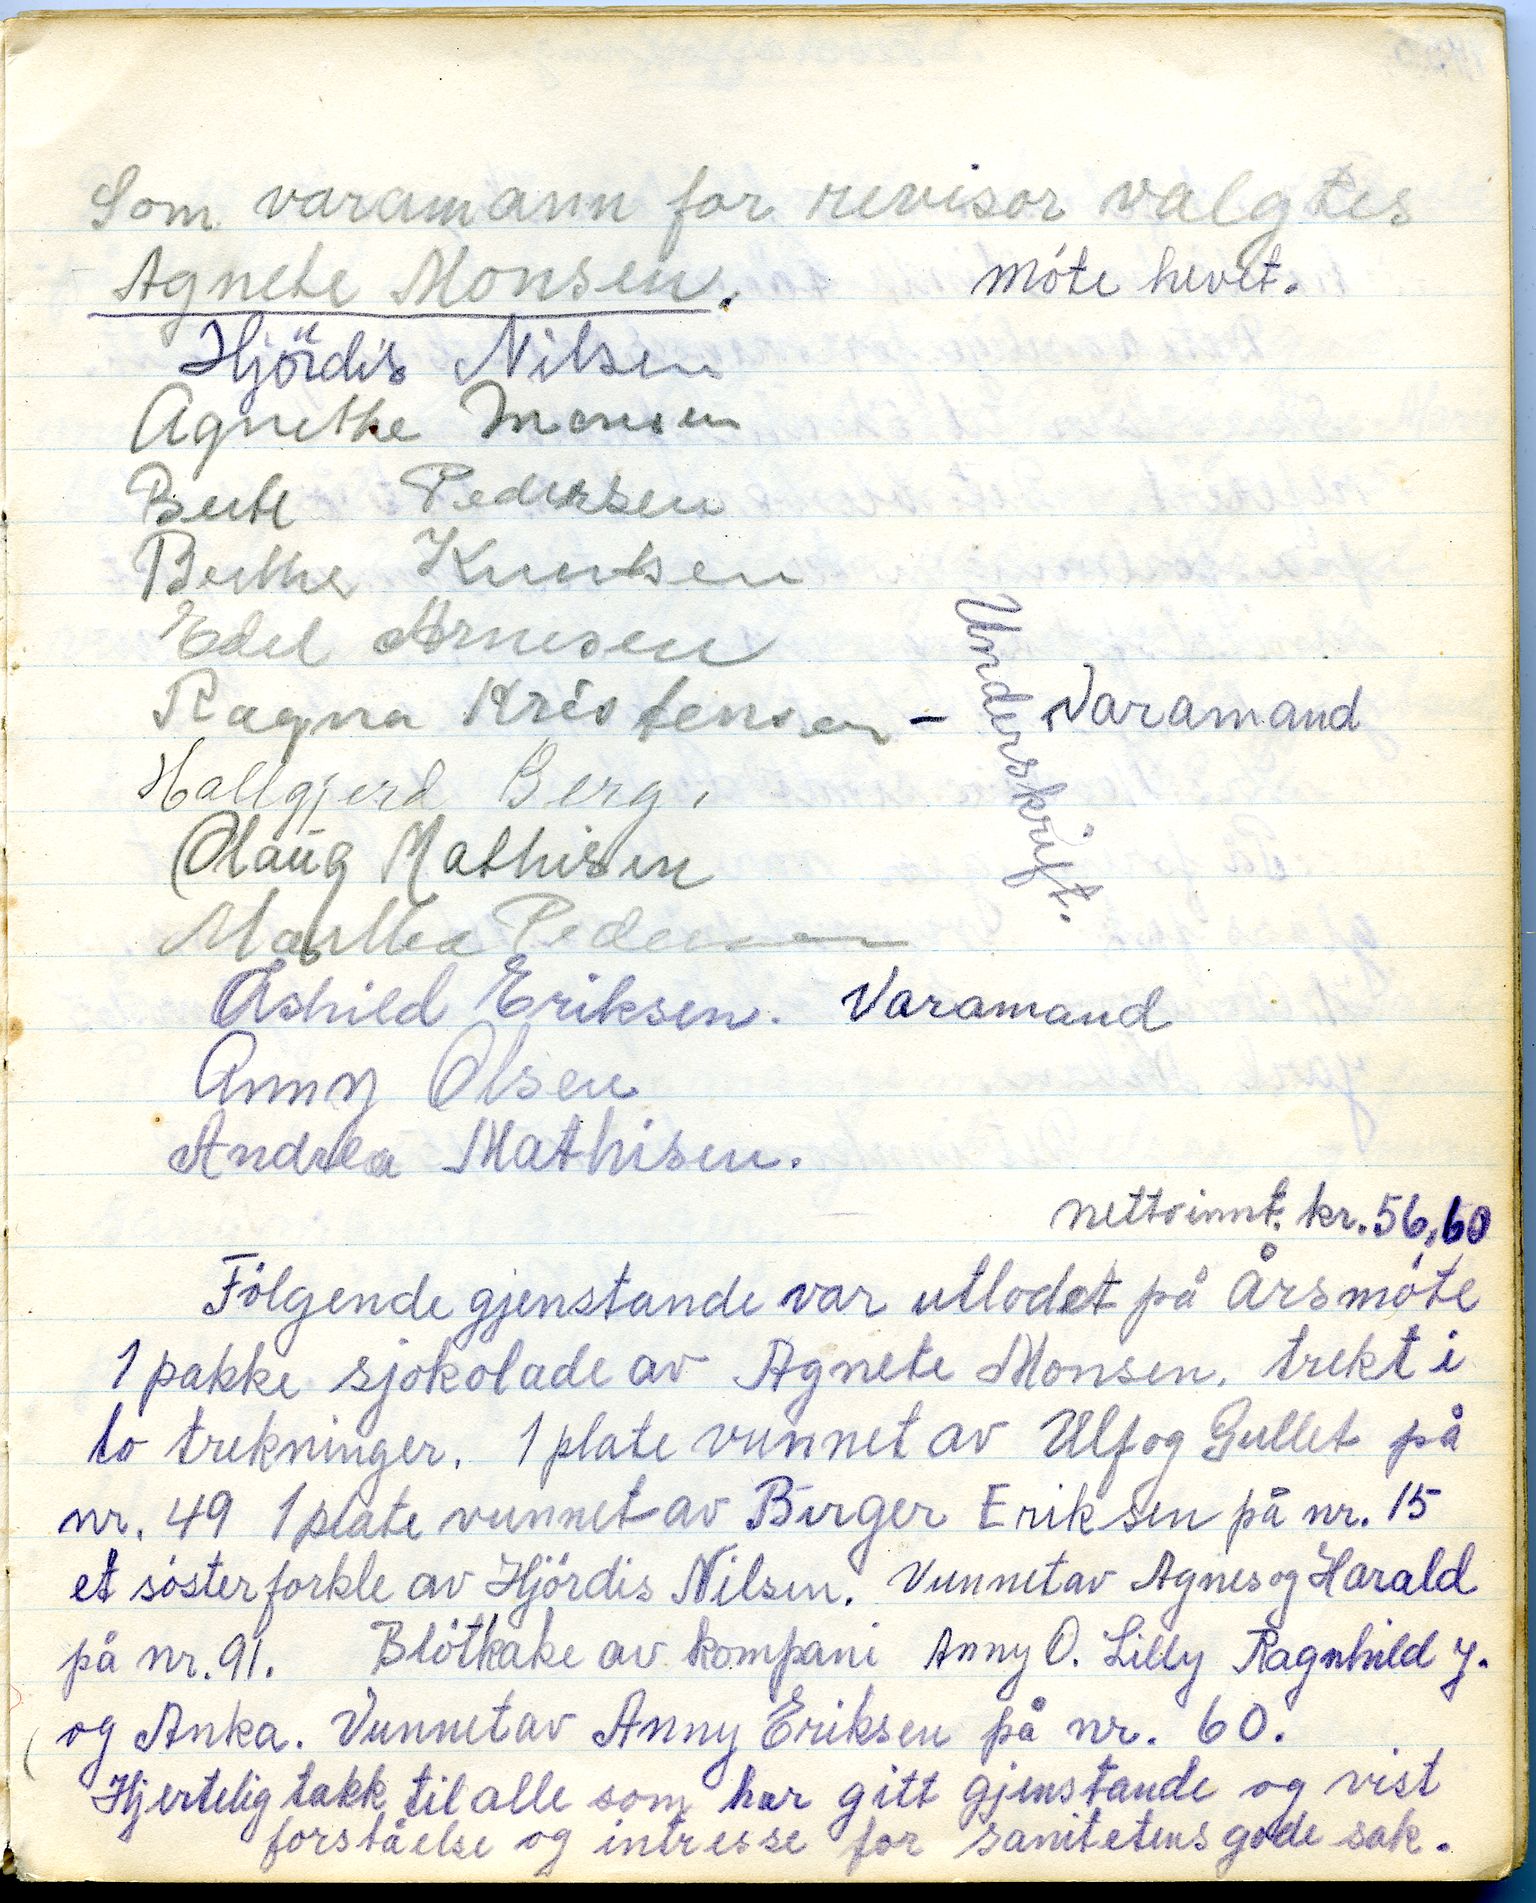 Som varamann for revisor valgtes
Agnete Monsen. Möte hevet.
Hjördis Nilsen
Agnethe Monsen
Berit Pedersen
Berthe Knutsen
Edel Arnesen
Ragna Kristensen – Varamand
Underskrift.
Hallgjerd Berg.
Olaug Mathisen
Martha Pedersen
Åshild Eriksen. Varamand
Anny Olsen
Andrea Mathisen.
nettoinnt. kr. 56,60
Fölgende gjenstande var utlodet på Årsmöte
1 pakke sjokolade av Agnete Monsen. trekt i
to trekninger. 1 plate vunnet av Ulf og Gullet på
nr. 49 1 plate vunnet av Birger Eriksen på nr. 15
et sösterforkle av Hjördis Nilsen. Vunnet av Agnes og Harald
på nr. 91. Blötkake av kompani Anny O. Lilly Ragnhild J.
og Anka. Vunnet av Anny Eriksen på nr. 60.
Hjertelig takk til alle som har gitt gjenstande og vist
forståelse og intresse for sanitetens gode sak.